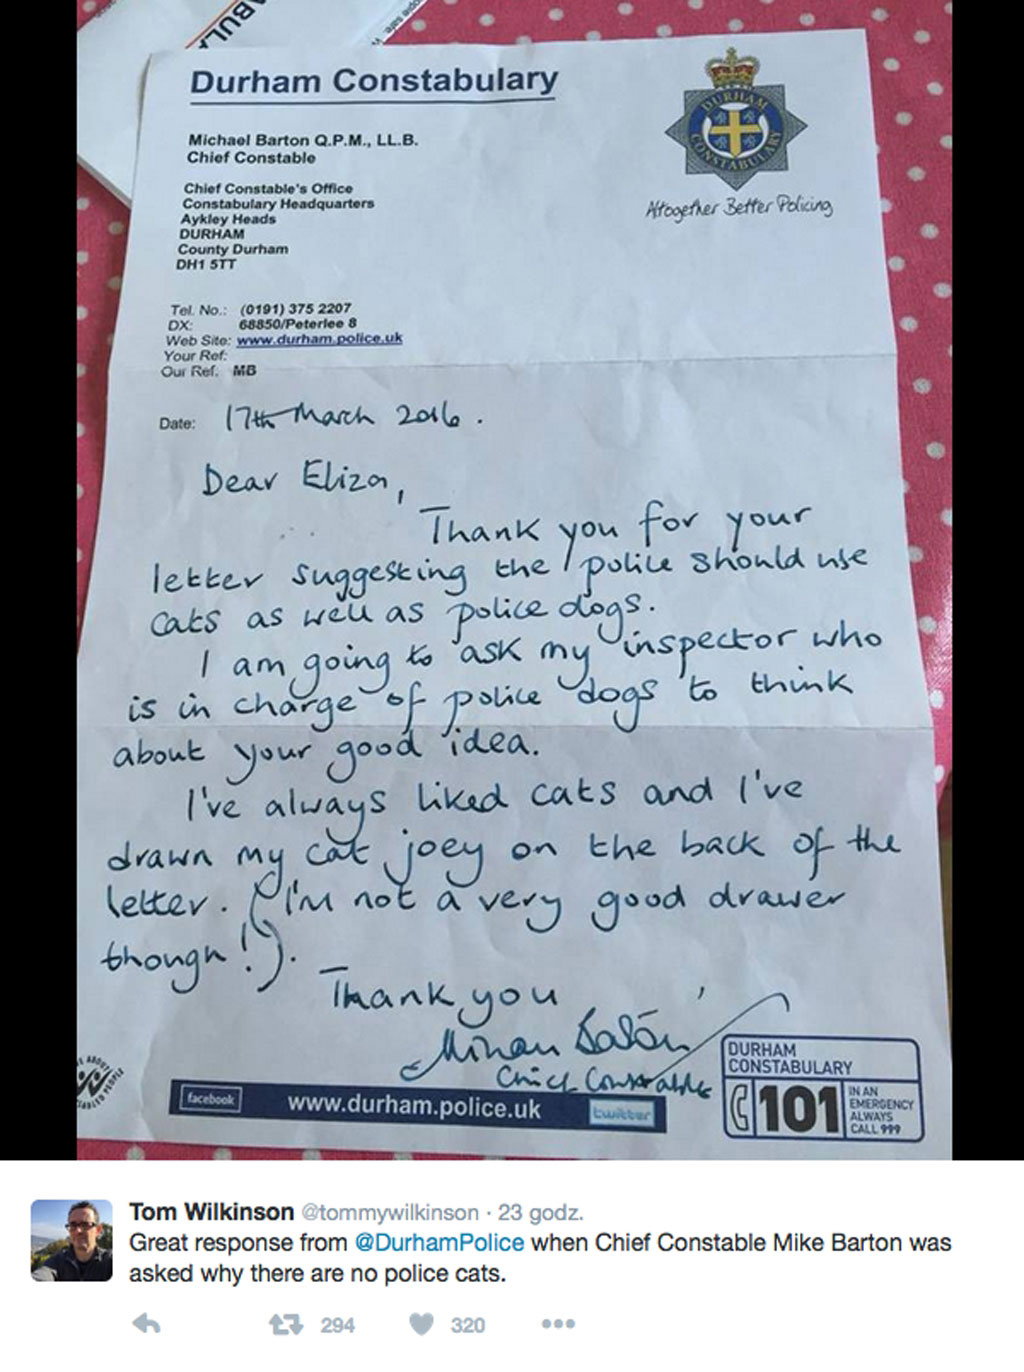 BULA
ople safe.
Durham Constabulary
DURHAM
CONSTABULARY
Altogether Better Policing
Michael Barton Q.P.M., LL.B.
Chief Constable
Chief Constable's Office
Constabulary Headquarters
Aykley Heads
DURHAM
County Durham
DH1 5TT
Tel. No.: (0191) 375 2207
DX: 68850/Peterlee 8
Web Site: www.durham.police.uk
Your Ref:
Our Ref. MB
Date: 17th March 2016.
Dear Eliza,
Thank you for your
letter suggesting the police should use
cats as well as police dogs.
I am going to ask my inspector who
is in charge of police dogs to think
about your good idea.
I've always liked cats and I've
drawn my cat joey on the back of the
letter. (I'm not a very good drawer
though!).
Thank you
Chief Constable
ABOUT
PEOPLE
facebook www.durham.police.uk twitter
DURHAM
CONSTABULARY
101
IN AN
EMERGENCY
ALWAYS
CALL 999
Tom Wilkinson @tommywilkinson · 23 godz.
Great response from @DurhamPolice when Chief Constable Mike Barton was
asked why there are no police cats.
294 320